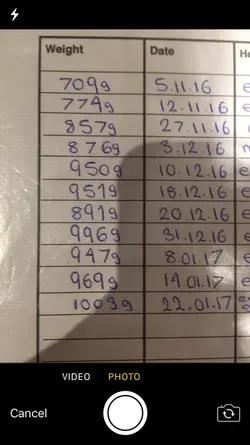 Weight Date He
709g 5.11.16 e
774g 12.11.16 e
857g 27.11.16
876g 3.12.16
950g 10.12.16 e
951g 18.12.16 e
891g 20.12.16
996g 31.12.16 e
947g 8.01.17 e
969g 14.01.17 e
1003g 22.01.17
VIDEO PHOTO
Cancel